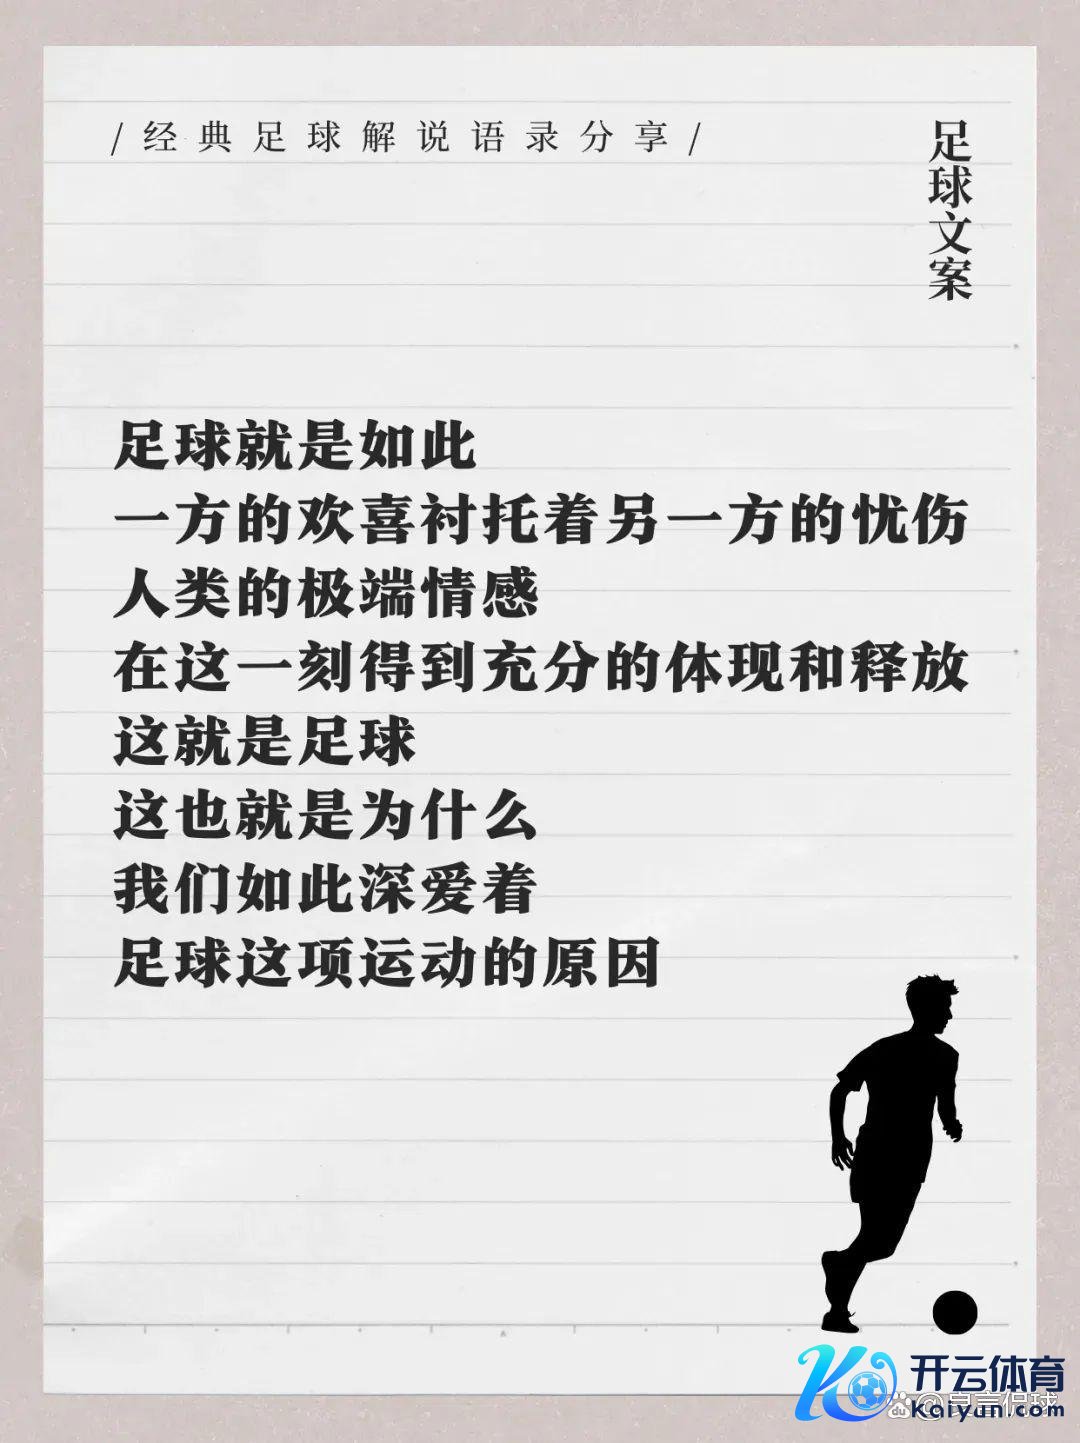 /经典足球解说语录分享/
足球文案
足球就是如此
一方的欢喜衬托着另一方的忧伤
人类的极端情感
在这一刻得到充分的体现和释放
这就是足球
这也就是为什么
我们如此深爱着
足球这项运动的原因
开云体育
Kaiyun.com